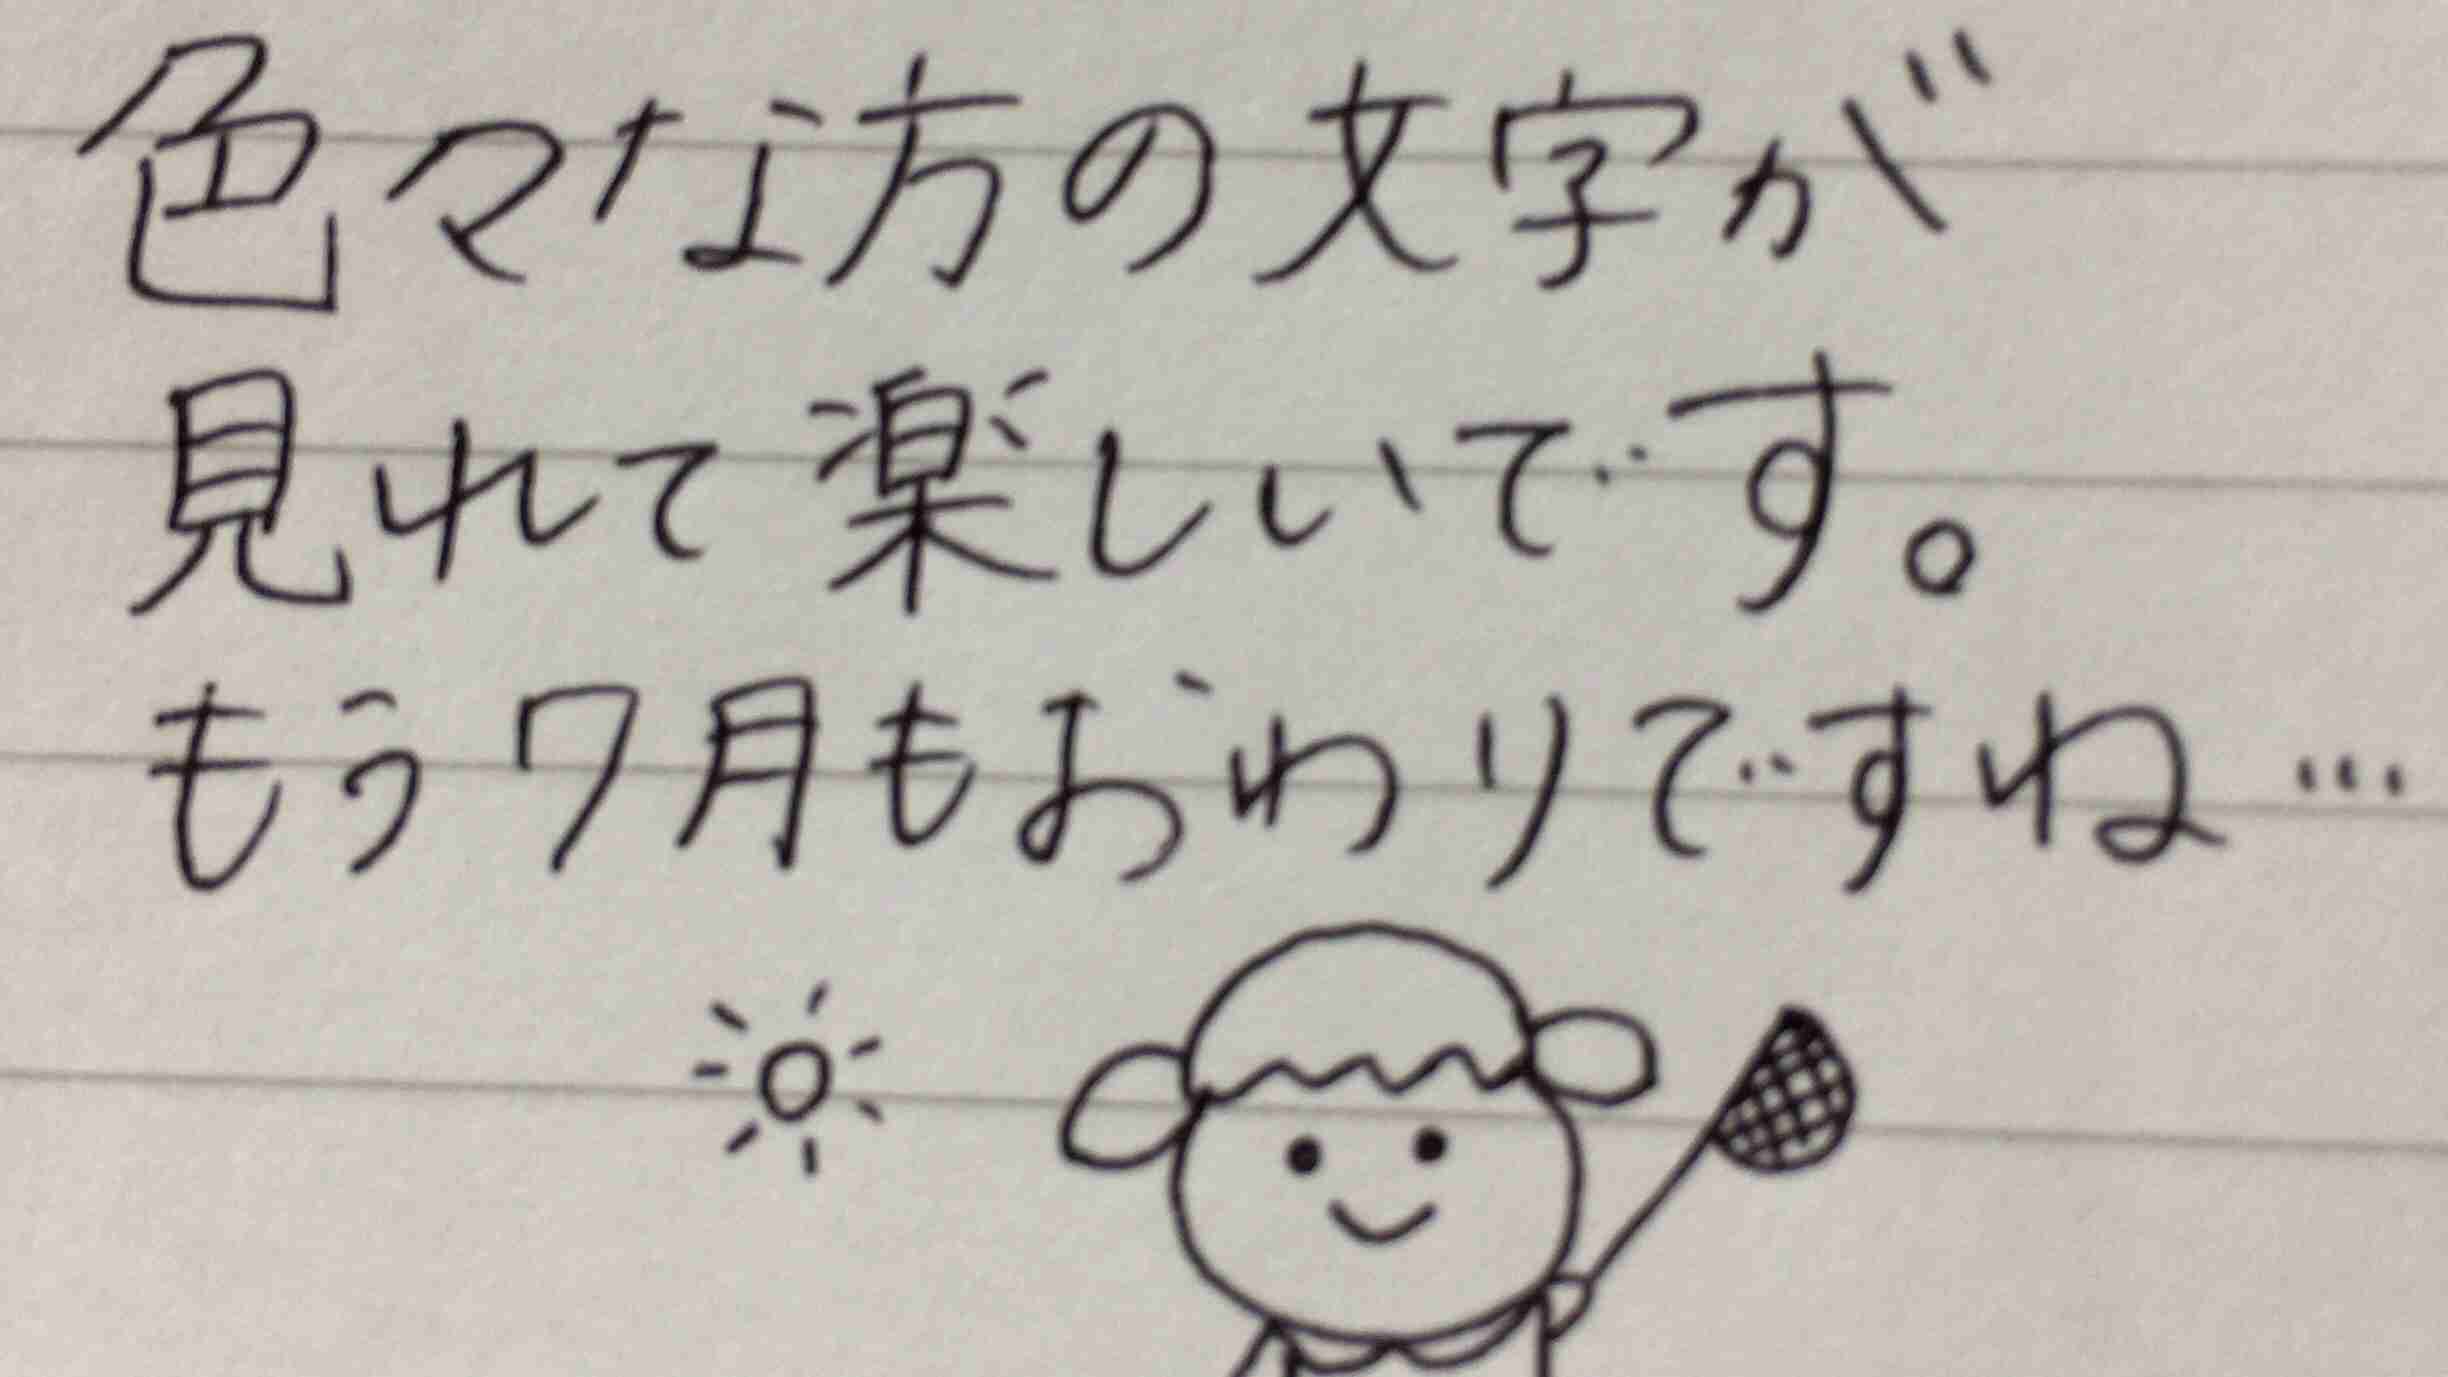 色々な方の文字が
見れて楽しいです。
もう7月もおわりですね…